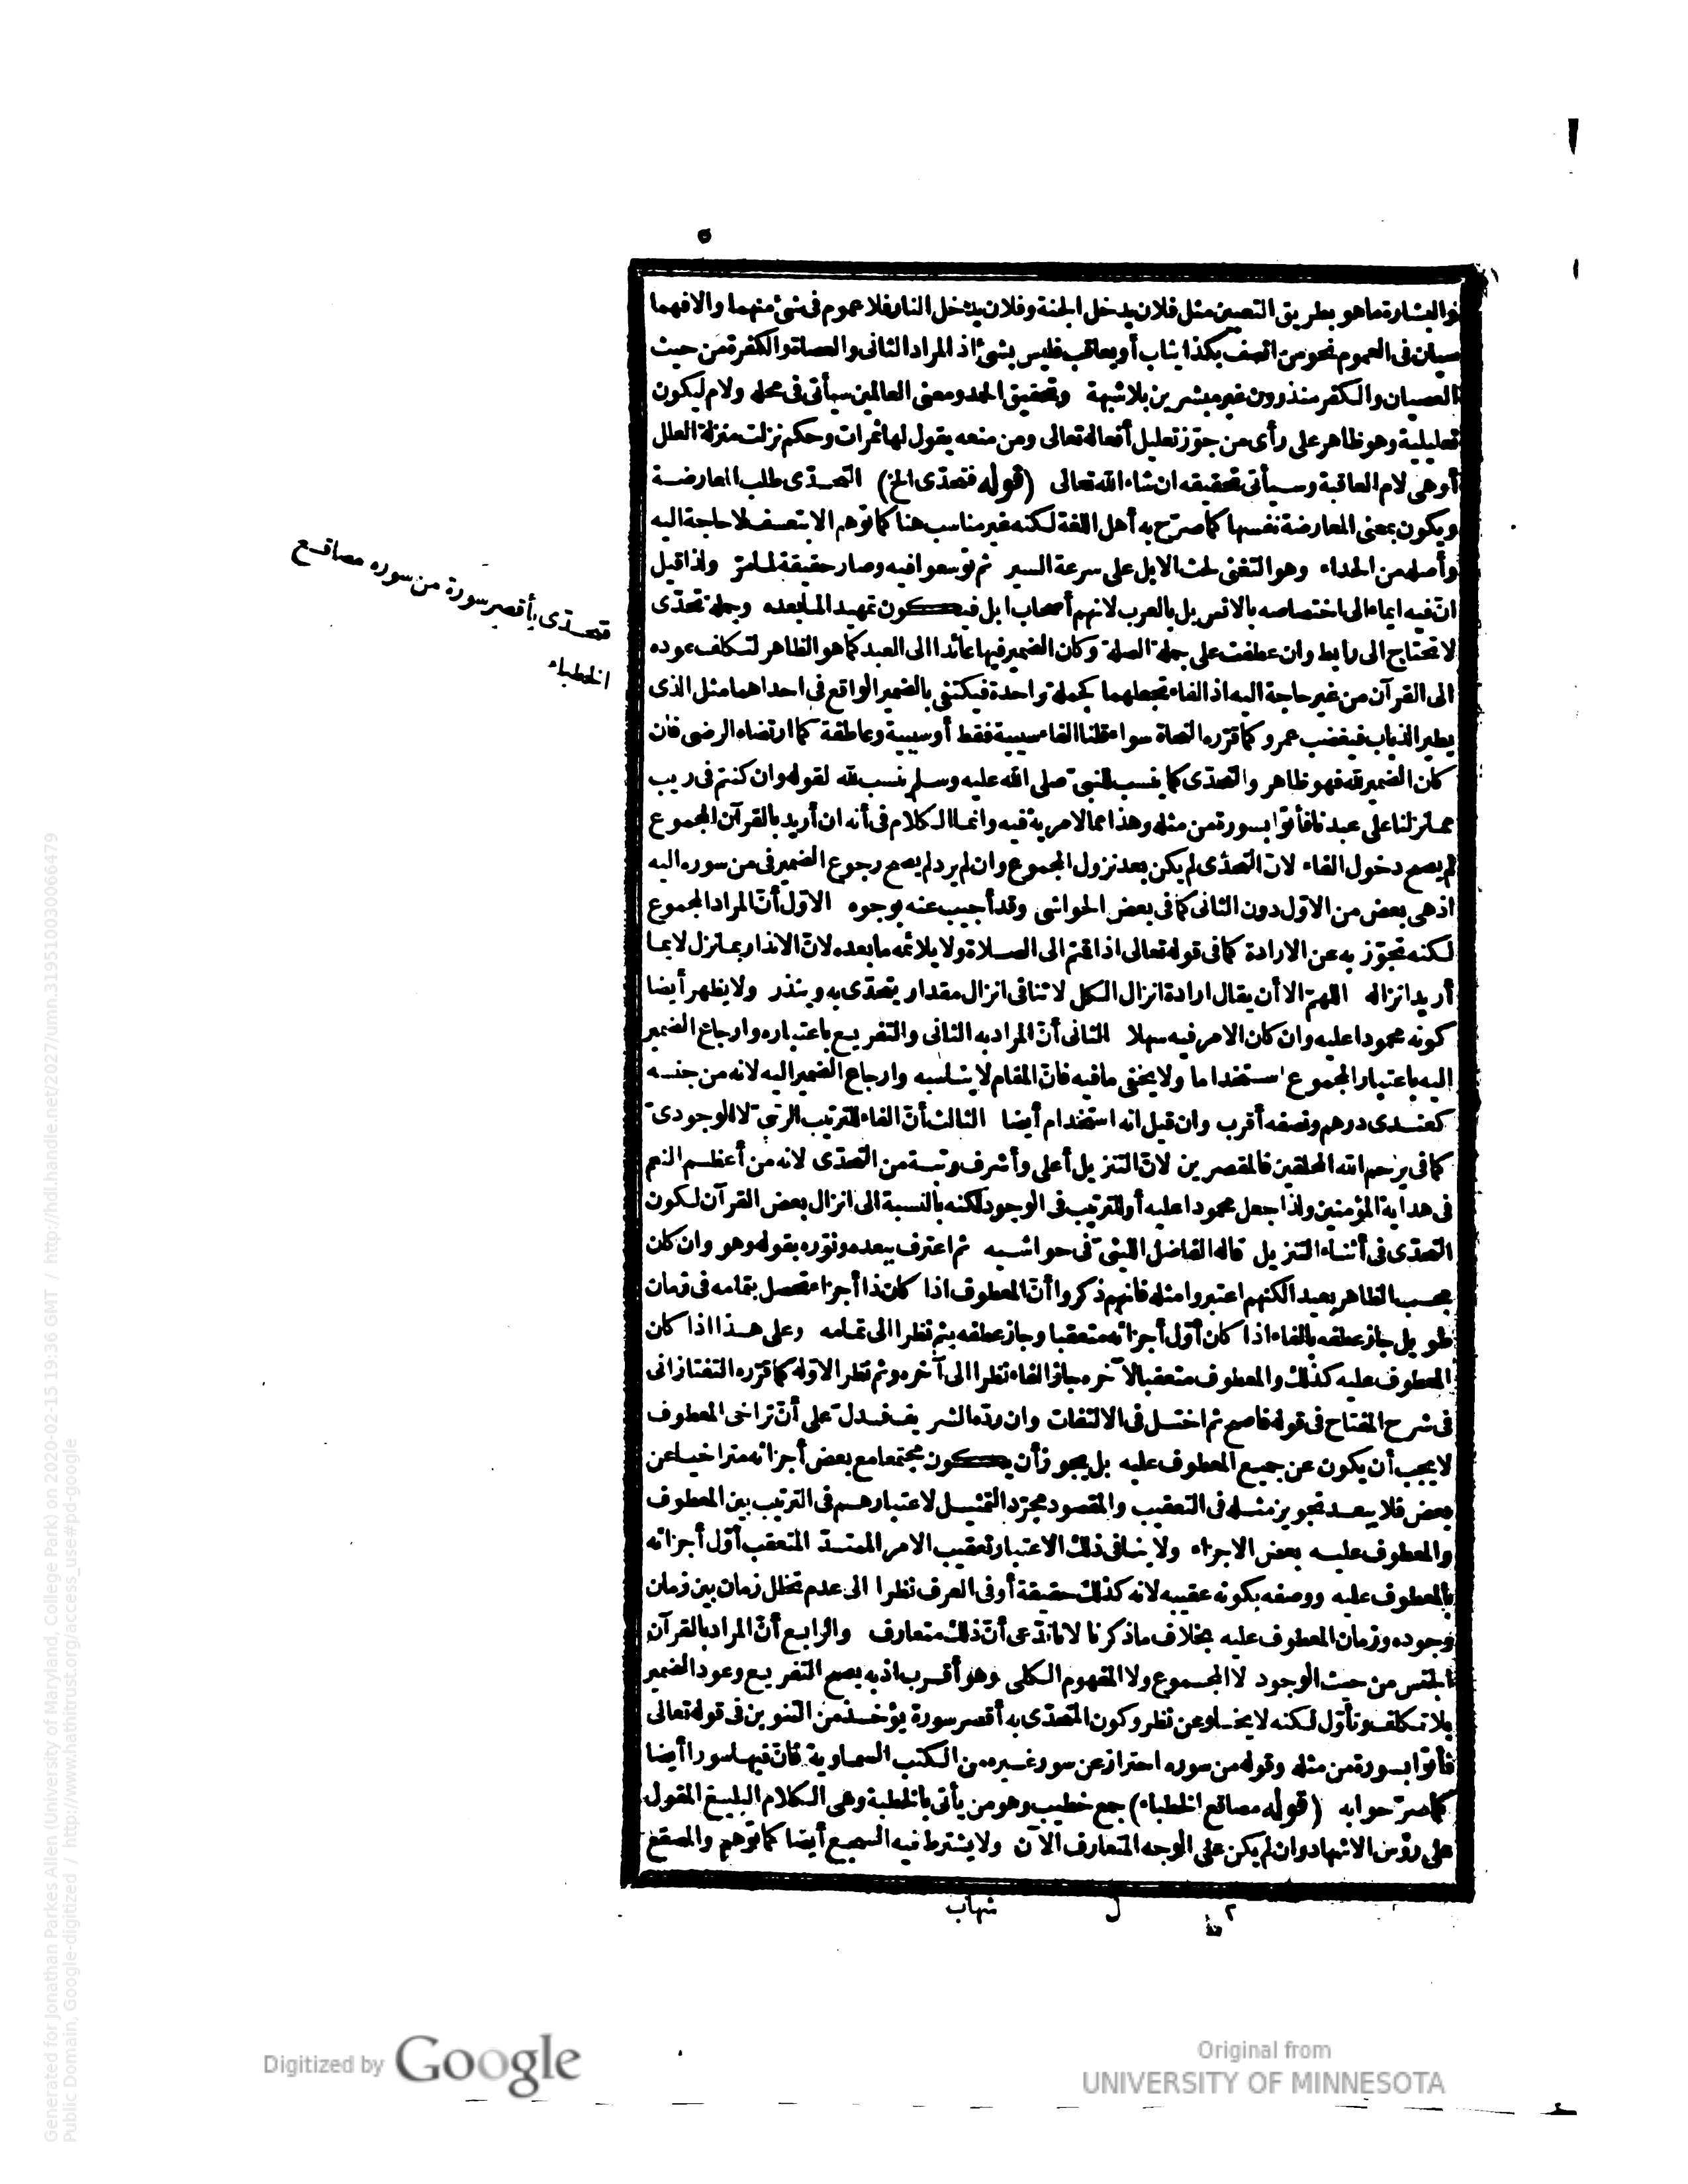 ٥
والبشارة ما هو بطريق التعيين مثل فلان يدخل الجنة وفلان يدخل النار فلا عموم في شئ منهما والا فهما
سيان في العموم نحو من اتصف بكذا يثاب أو يعاقب فليس بشئ اذ المراد الثاني والعصاة والكفرة من حيث
العصيان والكفر منذرون غير مبشرين بلا شبهة وتحقيق الحمد ومعنى العالمين سيأتي في محله ولام ليكون
تعليلية وهو ظاهر على رأى من جوّز تعليل أفعاله تعالى ومن منعه يقول لها ثمرات وحكم نزلت منزلة العلل
أو هي لام العاقبة وسيأتي تحقيقه ان شاء الله تعالى (قوله فتحدّى الخ) التحدّى طلب المعارضة
ويكون بمعنى المعارضة نفسها كما صرّح به أهل اللغة لكنه غير مناسب هنا كما توّهم الا بتعسف لا حاجة اليه
وأصله من الحداء وهو التغني لحث الابل على سرعة السير ثم توسعوا فيه وصار حقيقة لما مرّ ولذا قيل
انّ فيه ايماء الى اختصاصه بالانس بل بالعرب لانهم أصحاب ابل فيكون تمهيد الما بعده وجملة تحدّى
لا تحتاج الى رابط وان عطفت على جملة الصلة وكان الضمير فيها عائدا الى العبد كما هو الظاهر لتكلف عوده
الى القرآن من غير حاجة اليه اذ الفاء تجعلهما كجملة واحدة فيكتفي بالضمير الواقع في احداهما مثل الذى
يطير الذباب فيغضب عمرو كما قرّره النحاة سواء قلنا الفاء سببية فقط أو سببية وعاطفة كما ارتضاه الرضى فان
كان الضمير لله فهو ظاهر والتحدّى كما ينسب للنبيّ صلى الله عليه وسلم ينسب لله لقوله وان كنتم في ريب
مما نزلنا على عبدنا فأتوا بسورة من مثله وهذا مما لا مرية فيه وانما الكلام في أنه ان أريد بالقرآن المجموع
لم يصح دخول الفاء لانّ التحدّى لم يكن بعد نزول المجموع وان لم يرد لم يصح رجوع الضمير في من سوره اليه
اذ هي بعض من الاوّل دون الثاني كما في بعض الحواشي وقد أجيب عنه بوجوه الاوّل أنّ المراد المجموع
لكنه تجوّز به عن الارادة كما في قوله تعالى اذا قمتم الى الصلاة ولا يلائمه ما بعده لانّ الانذار بما نزل لا بما
أريد انزاله اللهمّ الا أن يقال ارادة انزال الكل لا تنافي انزال مقدار يتحدّى به وينذر ولا يظهر أيضا
كونه محمودا عليه وان كان الامر فيه سهلا الثاني أنّ المراد به الثاني والتفريع باعتباره وارجاع الضمير
اليه باعتبار المجموع استخداما ولا يخفى ما فيه فانّ المقام لا يناسبه وارجاع الضمير اليه لانه من جنسه
كعندى درهم ونصفه أقرب وان قيل انه استخدام أيضا الثالث أنّ الفاء للترتيب الرتبيّ لا الوجودىّ
كما في يرحم الله المحلقين فالمقصرين لانّ التنزيل أعلى وأشرف رتبة من التحدّى لانه من أعظم النعم
في هداية المؤمنين ولذا جعل محمودا عليه أو للترتيب في الوجود لكنه بالنسبة الى انزال بعض القرآن لكون
التحدّى في أثناء التنزيل قاله الفاضل الليثيّ في حواشيه ثم اعترف ببعده ونوّره بقوله وهو وان كان
بحسب الظاهر بعيدا لكنهم اعتبروا مثله فانهم ذكروا أنّ المعطوف اذا كان ذا أجزاء تحصل بتمامه في زمان
طويل جاز عطفه بالفاء اذا كان أوّل أجزائه متعقبا وجاز عطفه بثم نظرا الى تمامه وعلى هذا اذا كان
المعطوف عليه كذلك والمعطوف متعقبا لآخره جاز الفاء نظرا الى آخره وثم نظر الاوّله كما قرّره التفتازاني
في شرح المفتاح في قوله فاصح ثم اختل في الالتفات وان ردّه الشريف فدلّ على أنّ تراخى المعطوف
لا يجب أن يكون عن جميع المعطوف عليه بل يجوز أن يكون مجتمعا مع بعض أجزائه متراخيا عن
بعض فلا يبعد تجويز مثله في التعقيب والمقصود مجرّد التمثيل لاعتبارهم في الترتيب بين المعطوف
والمعطوف عليه بعض الاجزاء ولا ينافي ذلك الاعتبار تعقيب الامر الممتدّ المتعقب أوّل أجزائه
بالمعطوف عليه ووصفه بكونه عقيبه لانه كذلك حقيقة أو في العرف نظرا الى عدم تخلل زمان بين زمان
وجوده وزمان المعطوف عليه بخلاف ما ذكرنا لانا ندّعى أنّ ذلك متعارف والرابع أنّ المراد بالقرآن
الجنس من حيث الوجود لا المجموع ولا المفهوم الكلى وهو أقرب اذ به يصح التفريع وعود الضمير
بلا تكلف وتأوّل لكنه لا يخلو عن نظر وكون المتحدّى به أقصر سورة يؤخذ من التنوين في قوله تعالى
فأتوا بسورة من مثله وقوله من سوره احتراز عن سور غيره من الكتب السماوية فانّ فيها سورا أيضا
كما صرّحوا به (قوله مصاقع الخطباء) جمع خطيب وهو من يأتي بالخطبة وهي الكلام البليغ المقول
على رؤس الاشهاد وان لم يكن على الوجه المتعارف الآن ولا يشترط فيه السجع أيضا كما توّهم والمصقع
فتحدّى بأقصر سورة من سوره مصاقع
الخطباء
٢ ل شهاب
Digitized by Google
Original from
UNIVERSITY OF MINNESOTA
Generated for Jonathan Parkes Allen (University of Maryland, College Park) on 2020-02-15 19:36 GMT / http://hdl.handle.net/2027/umn.31951003006647 9
Public Domain, Google-digitized / http://www.hathitrust.org/access_use#pd-google